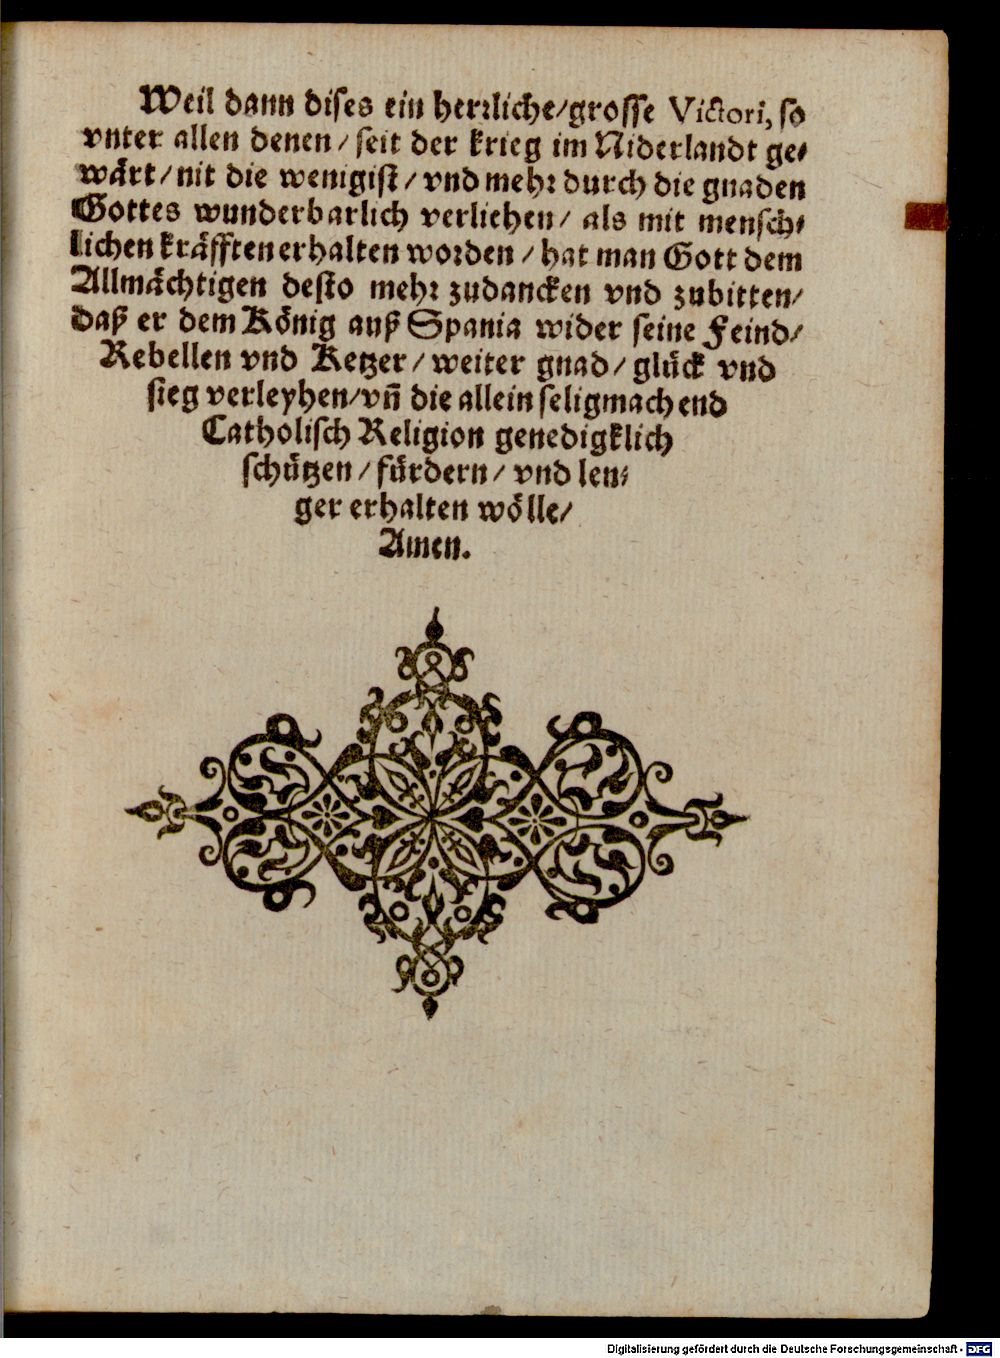 Weil dann dises ein herꝛliche/grosse Victori, so
vnter allen denen/seit der krieg im Niderlandt ge⸗
wärt/nit die wenigist/vnd mehꝛ durch die gnaden
Gottes wunderbarlich verliehen/ als mit mensch⸗
lichen kräfften erhalten woꝛden/hat man Gott dem
Allmächtigen desto mehꝛ zudancken vnd zubitten/
daß er dem König auß Spania wider seine Feind/
Rebellen vnd Ketzer/weiter gnad/glück vnd
sieg verleyhen/vn̄ die allein seligmachend
Catholisch Religion genedigklich
schützen/fürdern/vnd len⸗
ger erhalten wölle/
Amen.
Digitalisierung gefördert durch die Deutsche Forschungsgemeinschaft - DFG